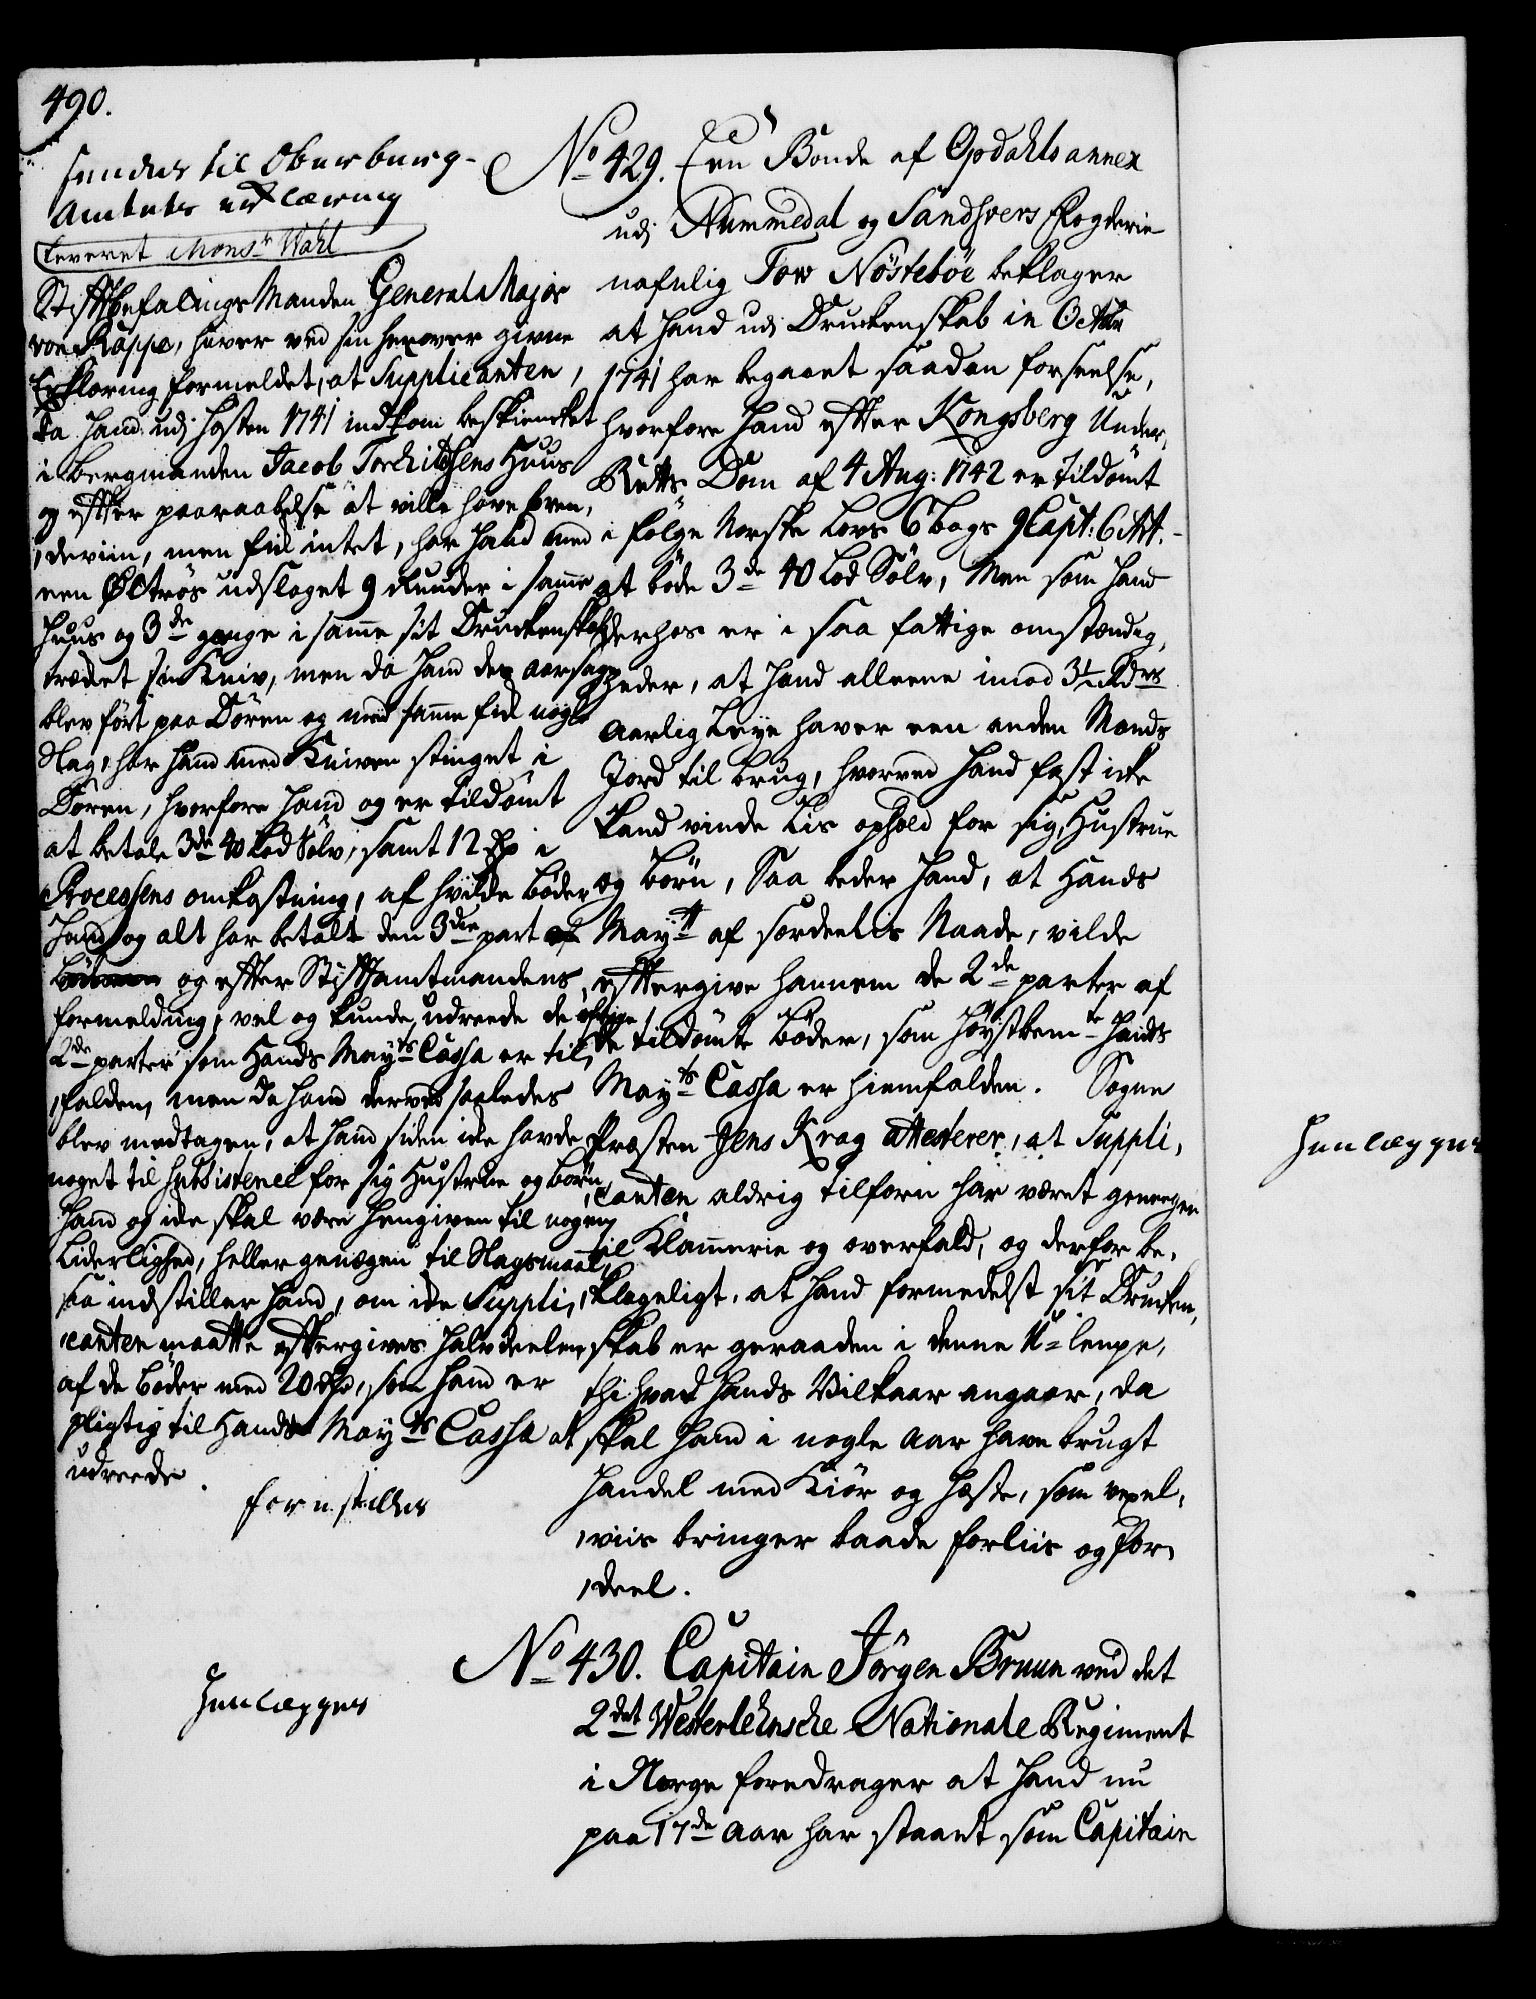 490.
sendes til Oberberg-
Amtets erklæring
leveret Mons.r Wahl
Stiftbefalings Manden General Major
von Rappe, haver ved sin herover givne
Erklæring formeldet, at Supplicanten,
da hand udj høsten 1741 indkom beskiencket
i bergmanden Jacob Torchildsens Huus
og efter paaraabelse at ville have bren,
,deviin, men fik intet, har hand med
een Øltrös udslaget 9 Ruuder i samme
Huus og 3de gange i samme sit Druckenskab
trædet sin Kniv, men da hand der aarsage
blev fört paa Dören og med samme fik nogle
Slag, har hand med Kniven stinget i
Dören, hvorfore hand og er tildömt
at betale 3de 40 Lod Sölv, samt 12 Rdr i
Processens omkostning, af hvilke Böder
hand og alt har betalt den 3die part
og efter Stiftamtmandens
formelding, vel og kunde udreede de öfrige
2de parter som Hands Mayts Cassa er til,
,falden, men da hand derved saaledes
blev medtagen, at hand siden icke havde
noget til Subsistence for sig Hustrue og börn,
hand og icke skal være hengiven til nogen
Liderlighed, heller genægen til Slagsmaal,
saa indstiller hand, om icke Suppli,
,canten maatte eftergives halvdeelen
af de Böder med 20 Rdr, som hand er
pligtig til Hands Mayts Cassa at
udreede.
forestilles
No 429. Een Bonde af Opdahls annex
udj Nummedal og Sandsvers Fogderie
nafnlig Tow Nöstebôe beklager
at hand udj Druckenskab in Octobr
1741 har begaaet saadan forseelse,
hvorfore hand efter Kongsberg Under,
Retts Dom af 4 Aug: 1742 er tildömt
i fölge Norske Lovs 6 bogs 9 Capt: 6 Art.
at böde 3de 40 Lod Sölv, Men som hand
derhos er i saa fattige omstændig,
heder, at hand alleene imod 3½ Rdrs
Aarlig Leye haver een anden Mands
Jord til brug, hvorved hand fast icke
kand vinde Lis ophold for sig, Hustrue
og börn, Saa beder hand, at Hands
Maytt af sordeelis Naade, vilde
eftergive hannem de 2de parter af
de tildömte Böder, som Höystbemte Hands
Mayts Cassa er hiemfalden. Sogne
Præsten Jens Krag attesterer, at Suppli,
,canten aldrig tilforn har været geneegen
til Klammerie og overfald, og derfor be,
,klageligt, at hand formedelst sit Drucken,
skab er geraaden i denne U=lempe,
thi hvad hands Vilkaar angaar, da
skal hand i nogle Aar have brugt
Handel med Kiör og Heste, som vexel,
,viis bringer baade forliis og for,
,deel.
Henlægges
No 430. Capitain Jörgen Bruun ved det
2det Westerlehnsche Nationale Regiment
i Norge foredrager at hand nu
paa 17de Aar har staaet som Capitain
Henlægges